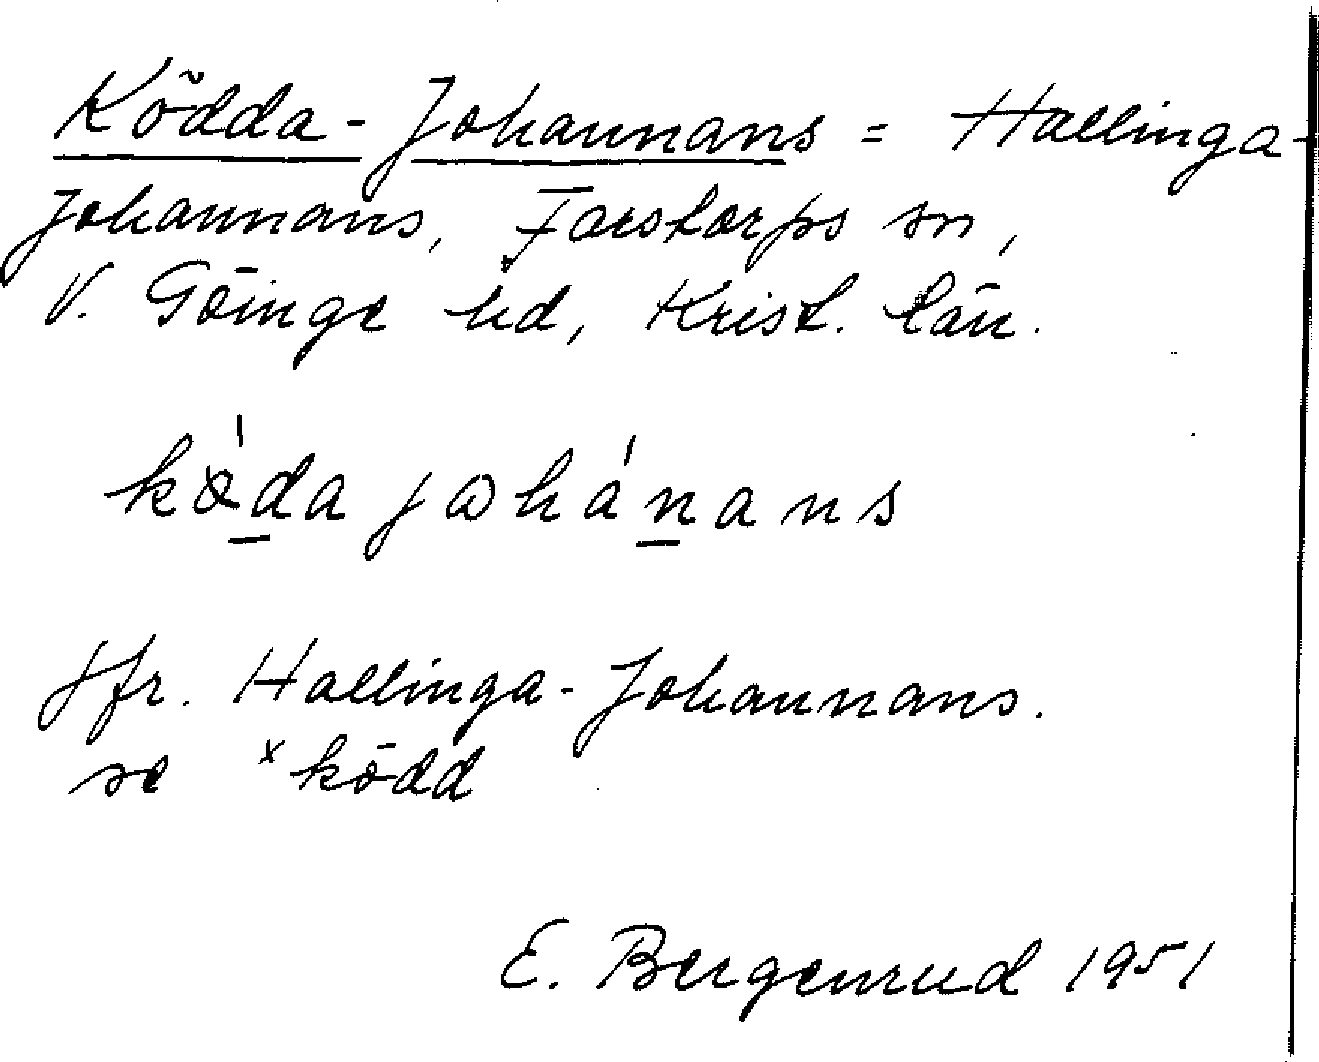 Ködda-Johannans = Hallinga-
Johannans, Farstorps sn,
V. Göinge hd, Krist. län.
kǿda johánans
Jfr. Hallinga-Johannans.
se ˣködd
E. Bergenrud 1951